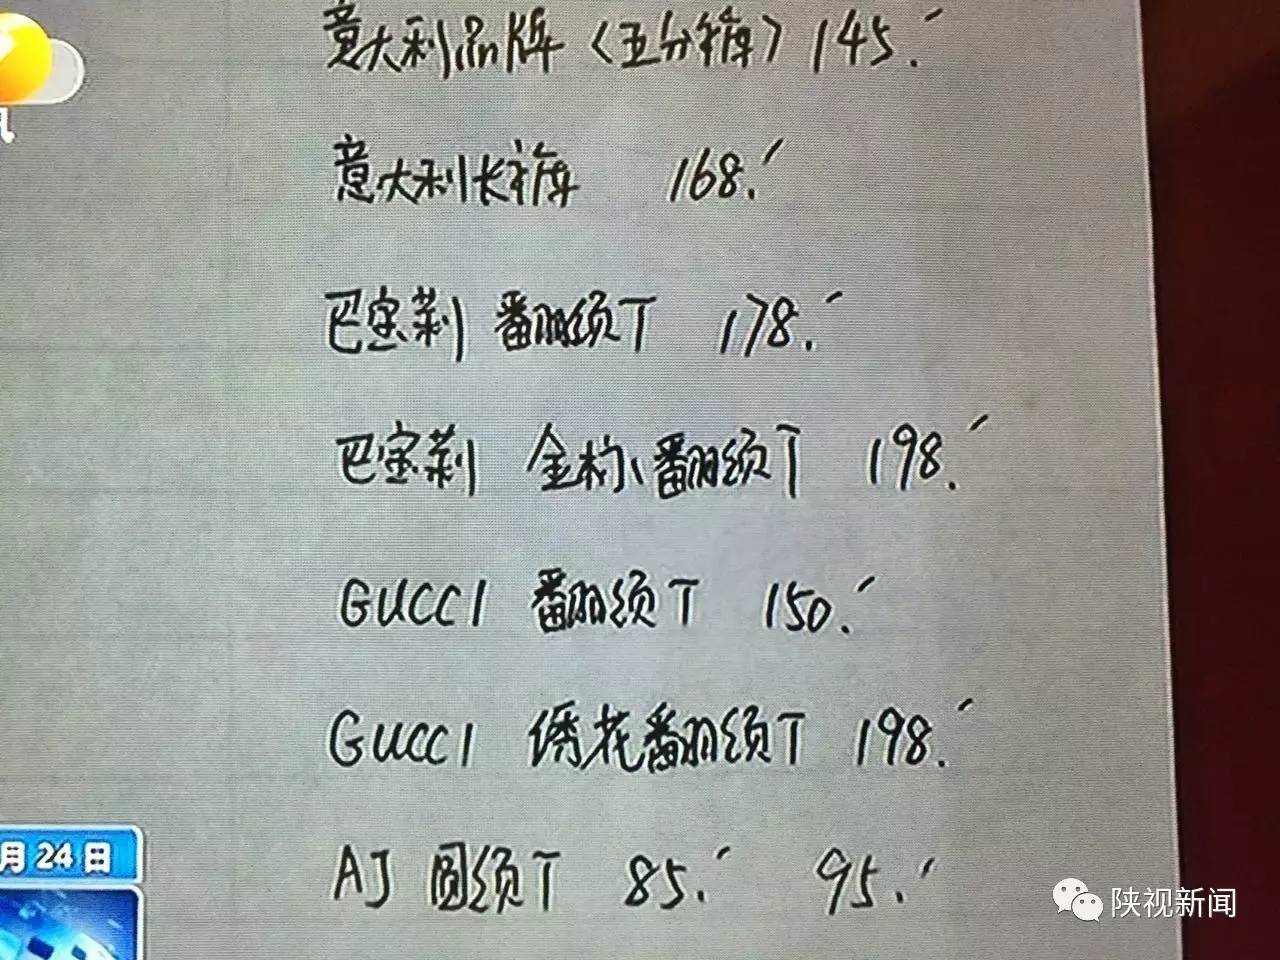 意大利品牌（五分裤）145.
意大利长裤 168.
巴宝莉 翻领T 178.
巴宝莉 金标翻领T 198.
GUCCI 翻领T 150.
GUCCI 绣花翻领T 198.
AJ 圆领T 85. 95.
月24日
陕视新闻